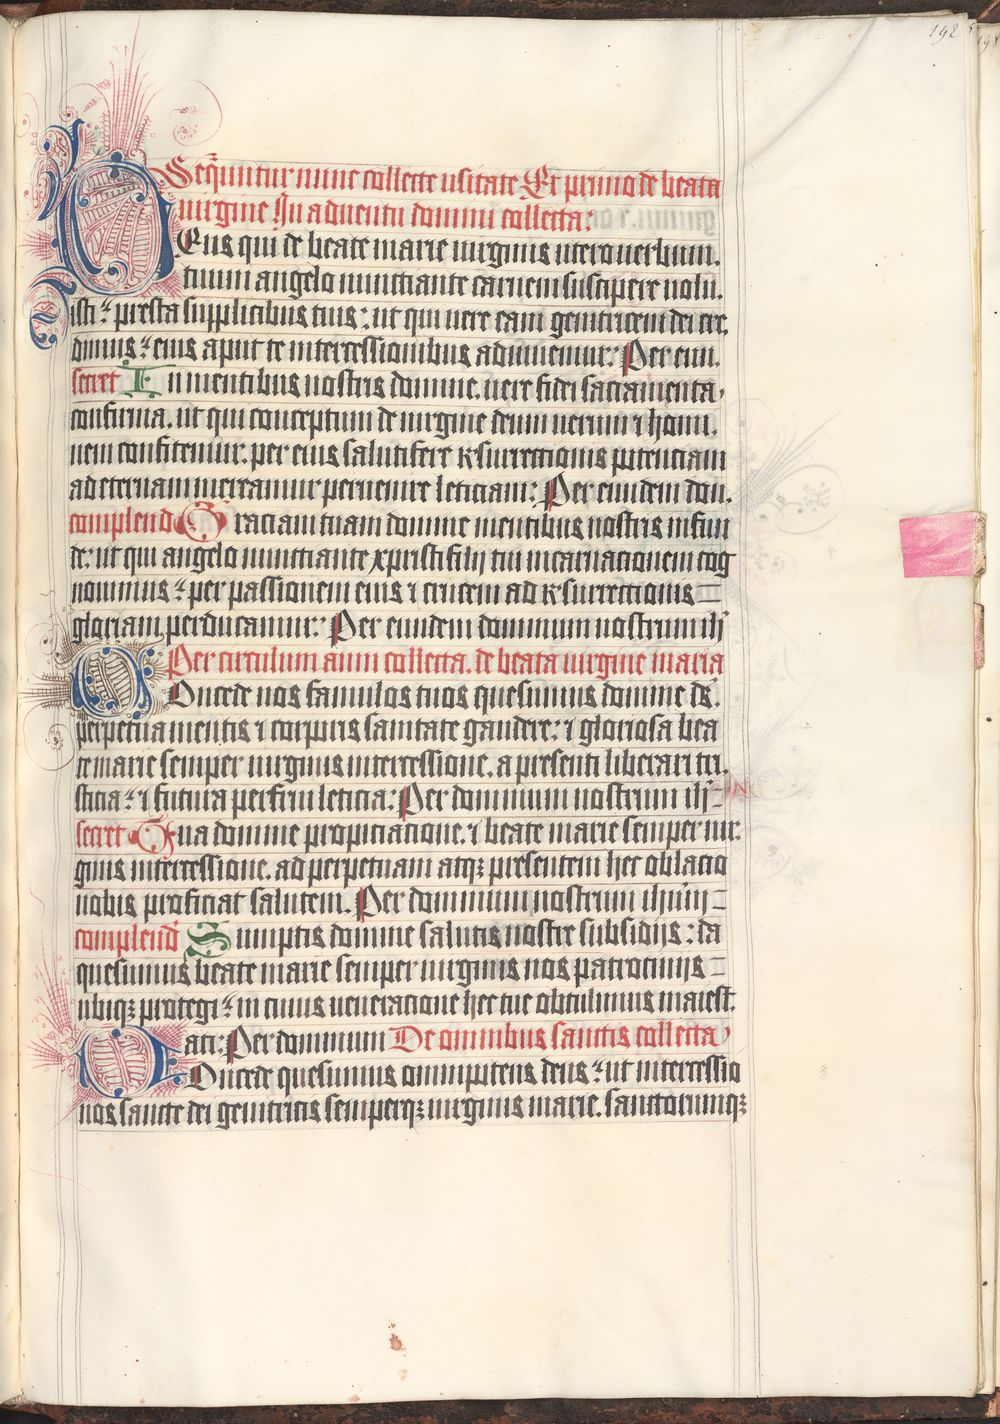 192
Sequntur nunc collecte usitate Et primo de beata
virgine In adventu domini collecta:
Deus qui de beate marie virginis utero verbum.
tuum angelo nunctiante carnem suscipere volu.
isti: presta supplicibus tuis: ut qui vere eam genitricem dei cre.
dimus: eius aput te intercessionibus adiuvemur: Per eun.
secret In mentibus nostris domine. vere fidei sacramenta
confirma. ut qui conceptum de virgine deum verum et homi.
nem confitemur. per eius salutifere resurrectionis potenciam
ad eternam mereamur pervenire leticiam: Per eundem dom.
complend Graciam tuam domine mentibus nostris infun
de: ut qui angelo nunctiante xpristi filij tui incarnacionem cog
novimus: per passionem eius et crucem ad resurrectionis
gloriam perducamur: Per eundem dominum nostrum ih̄
Per circulum anni collecta. de beata virgine maria
Concede nos famulos tuos quesumus domine ds̄.
perpetua mentis et corporis sanitate gaudere: et gloriosa bea
te marie semper virginis intercessione. a presenti liberari tri.
sticia: et futura perfrui leticia: Per dominum nostrum ih̄
secret Tua domine propiciacione. et beate marie semper vir.
ginis intercessione. ad perpetuam atq; presentem hec oblacio
nobis proficiat salutem. Per dominum nostrum ihūm
complend Sumptis domine salutis nostre subsidijs: da
quesumus beate marie semper virginis nos patrocinijs
ubiq; protegi: in cuius veneracione hec tue obtulimus maiest.
ati: Per dominum De omnibus sanctis collecta
Concede quesumus omnipotens deus: ut intercessio
nos sancte dei genitricis semperq; virginis marie. sanctorumq;